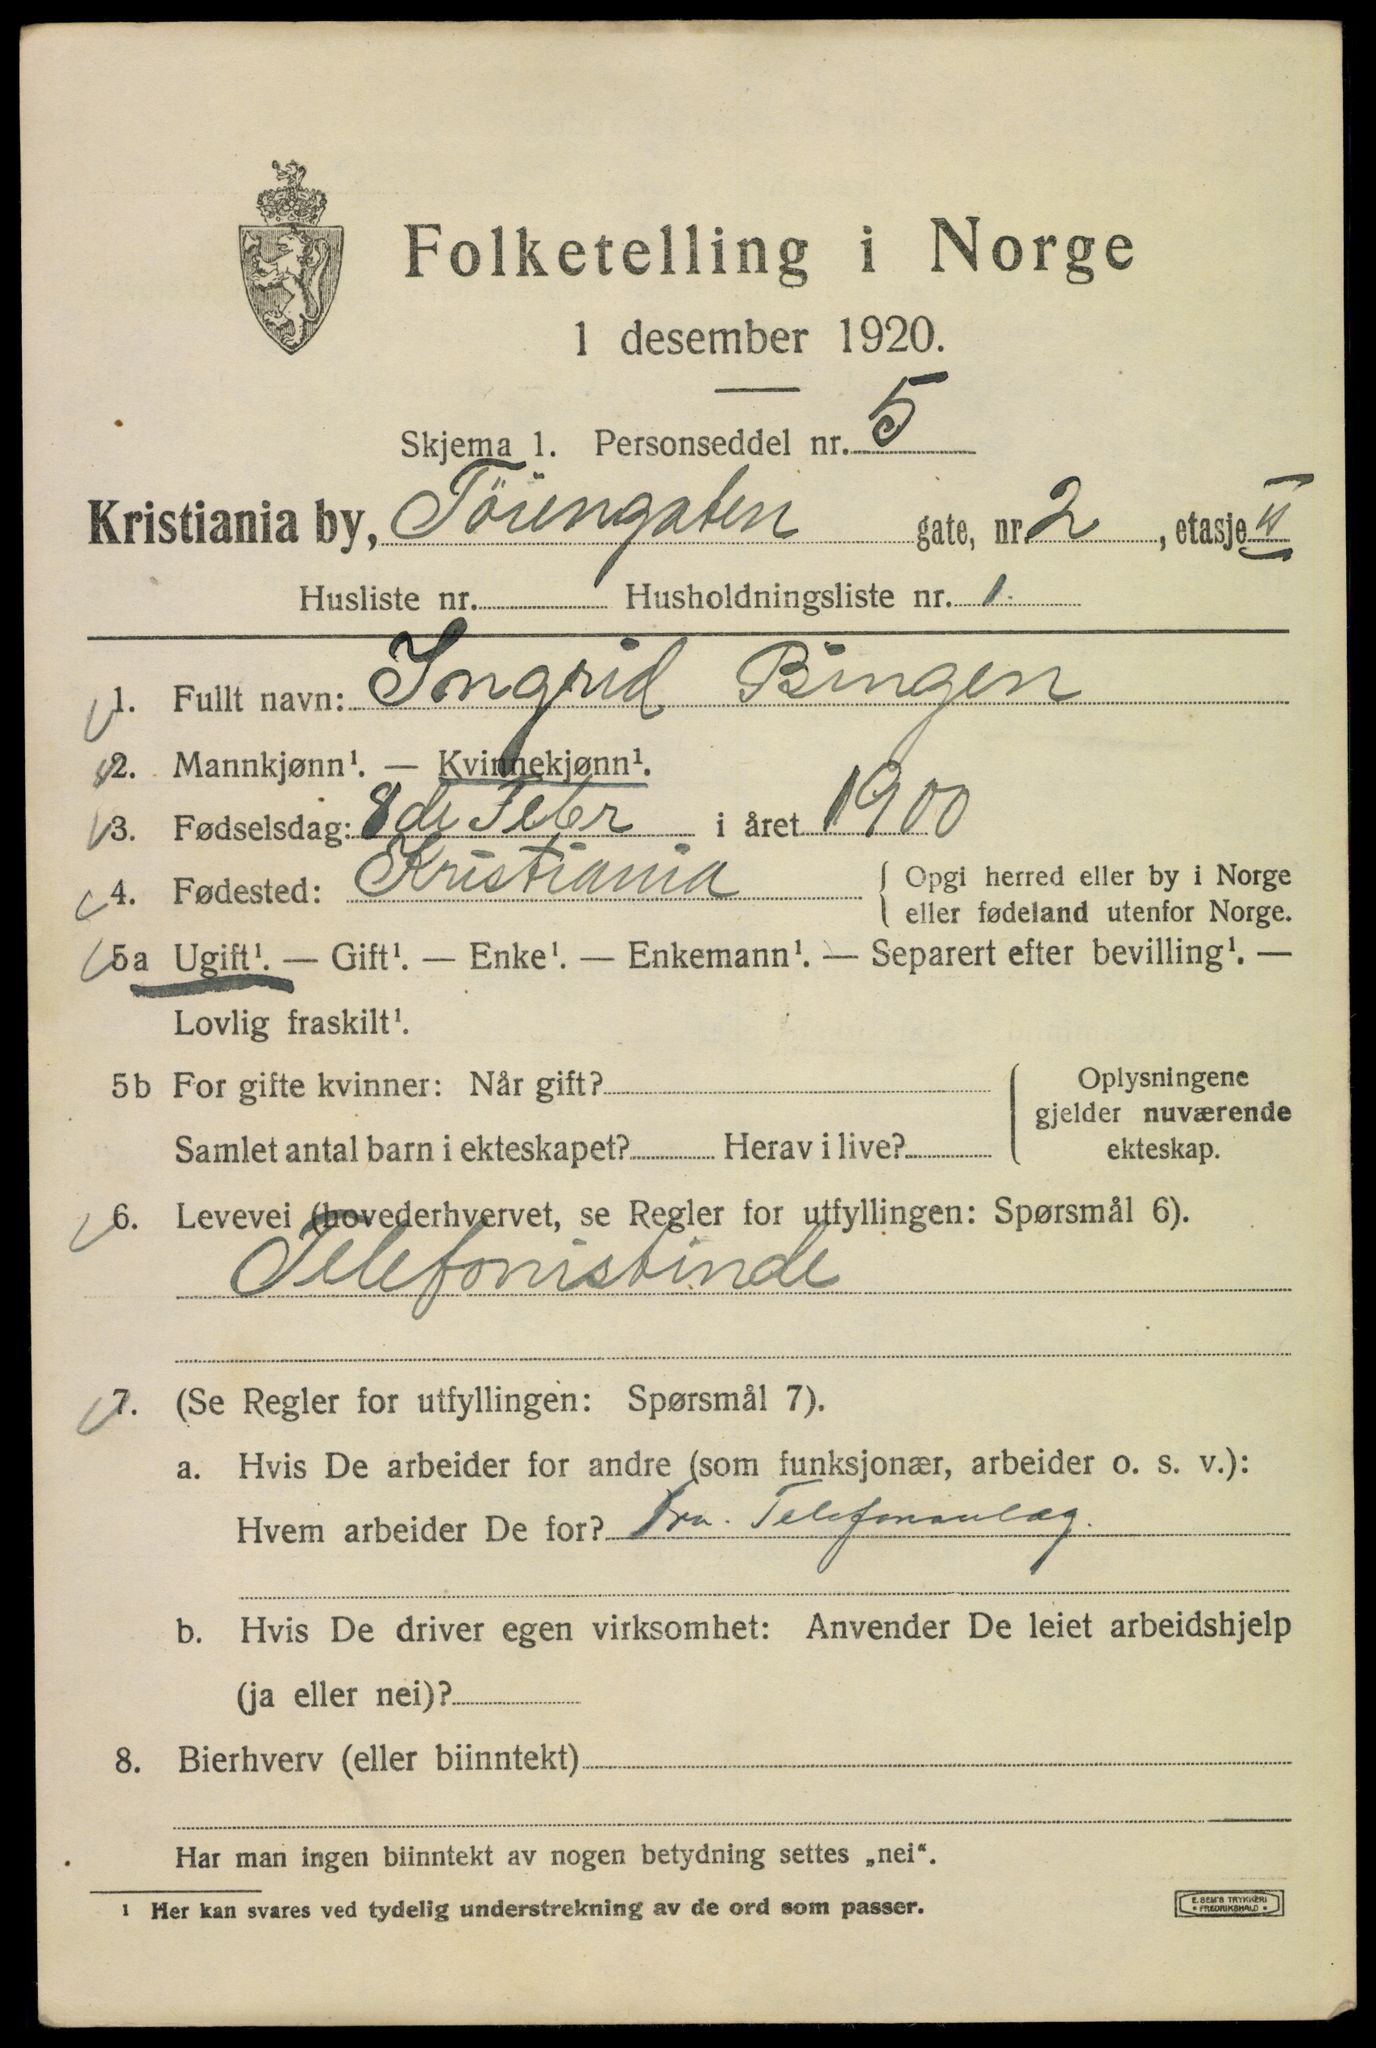 Folketelling i Norge
1 desember 1920.
Skjema 1. Personseddel nr. 5
Kristiania by, Töiengaten gate, nr. 2, etasje
Husliste nr. Husholdningsliste nr. 1.
1. Fullt navn: Ingrid Bingen
2. Mannkjønn¹. — Kvinnekjønn¹.
3. Fødselsdag: 8de Febr i året 1900
4. Fødested: Kristiania { Opgi herred eller by i Norge
eller fødeland utenfor Norge.
5a Ugift¹. — Gift¹. — Enke¹. — Enkemann¹. — Separert efter bevilling¹. —
Lovlig fraskilt¹.
5b For gifte kvinner: Når gift? { Oplysningene
gjelder nuværende
Samlet antal barn i ekteskapet? Herav i live? ekteskap.
6. Levevei (hovederhvervet, se Regler for utfyllingen: Spørsmål 6).
Telefonistinde
7. (Se Regler for utfyllingen: Spørsmål 7).
a. Hvis De arbeider for andre (som funksjonær, arbeider o. s. v.):
Hvem arbeider De for? Kra. Telefonanlæg.
b. Hvis De driver egen virksomhet: Anvender De leiet arbeidshjelp
(ja eller nei)?
8. Bierhverv (eller biinntekt)
Har man ingen biinntekt av nogen betydning settes „nei“.
¹ Her kan svares ved tydelig understrekning av de ord som passer.
E. SEM'S TRYKKERI
• FREDRIKSHALD •